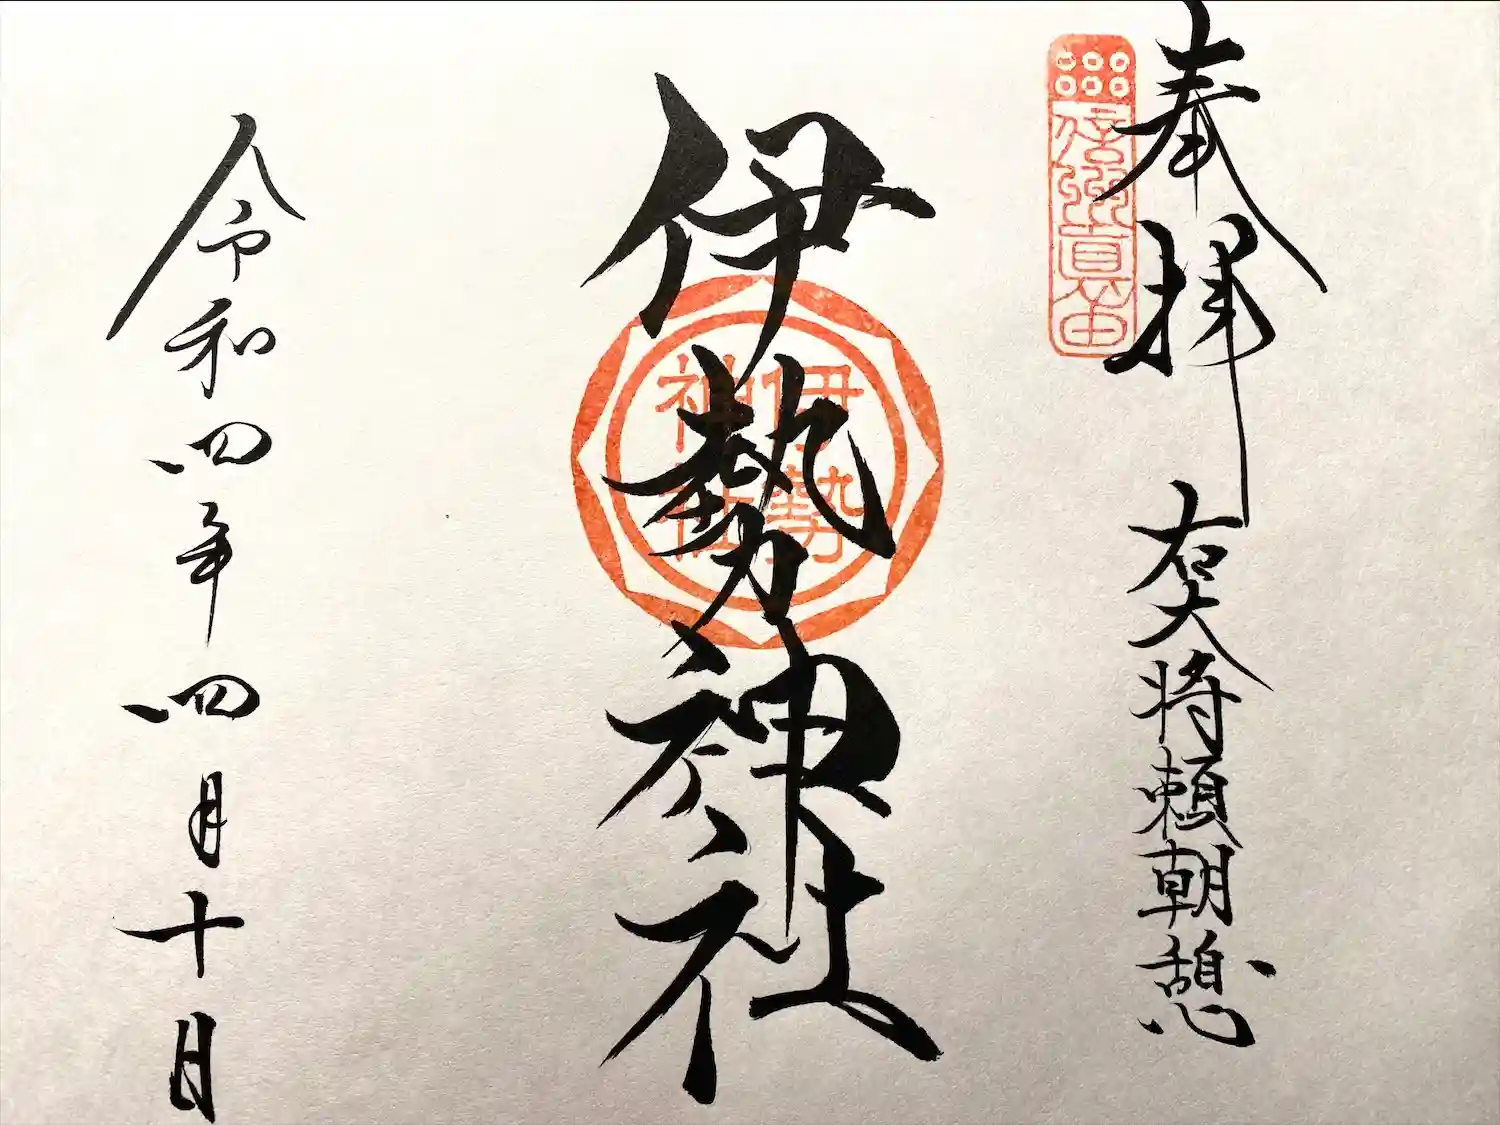 奉拝
右大将頼朝憩
信州真田
伊勢神社
伊勢
神社
令和四年四月十日